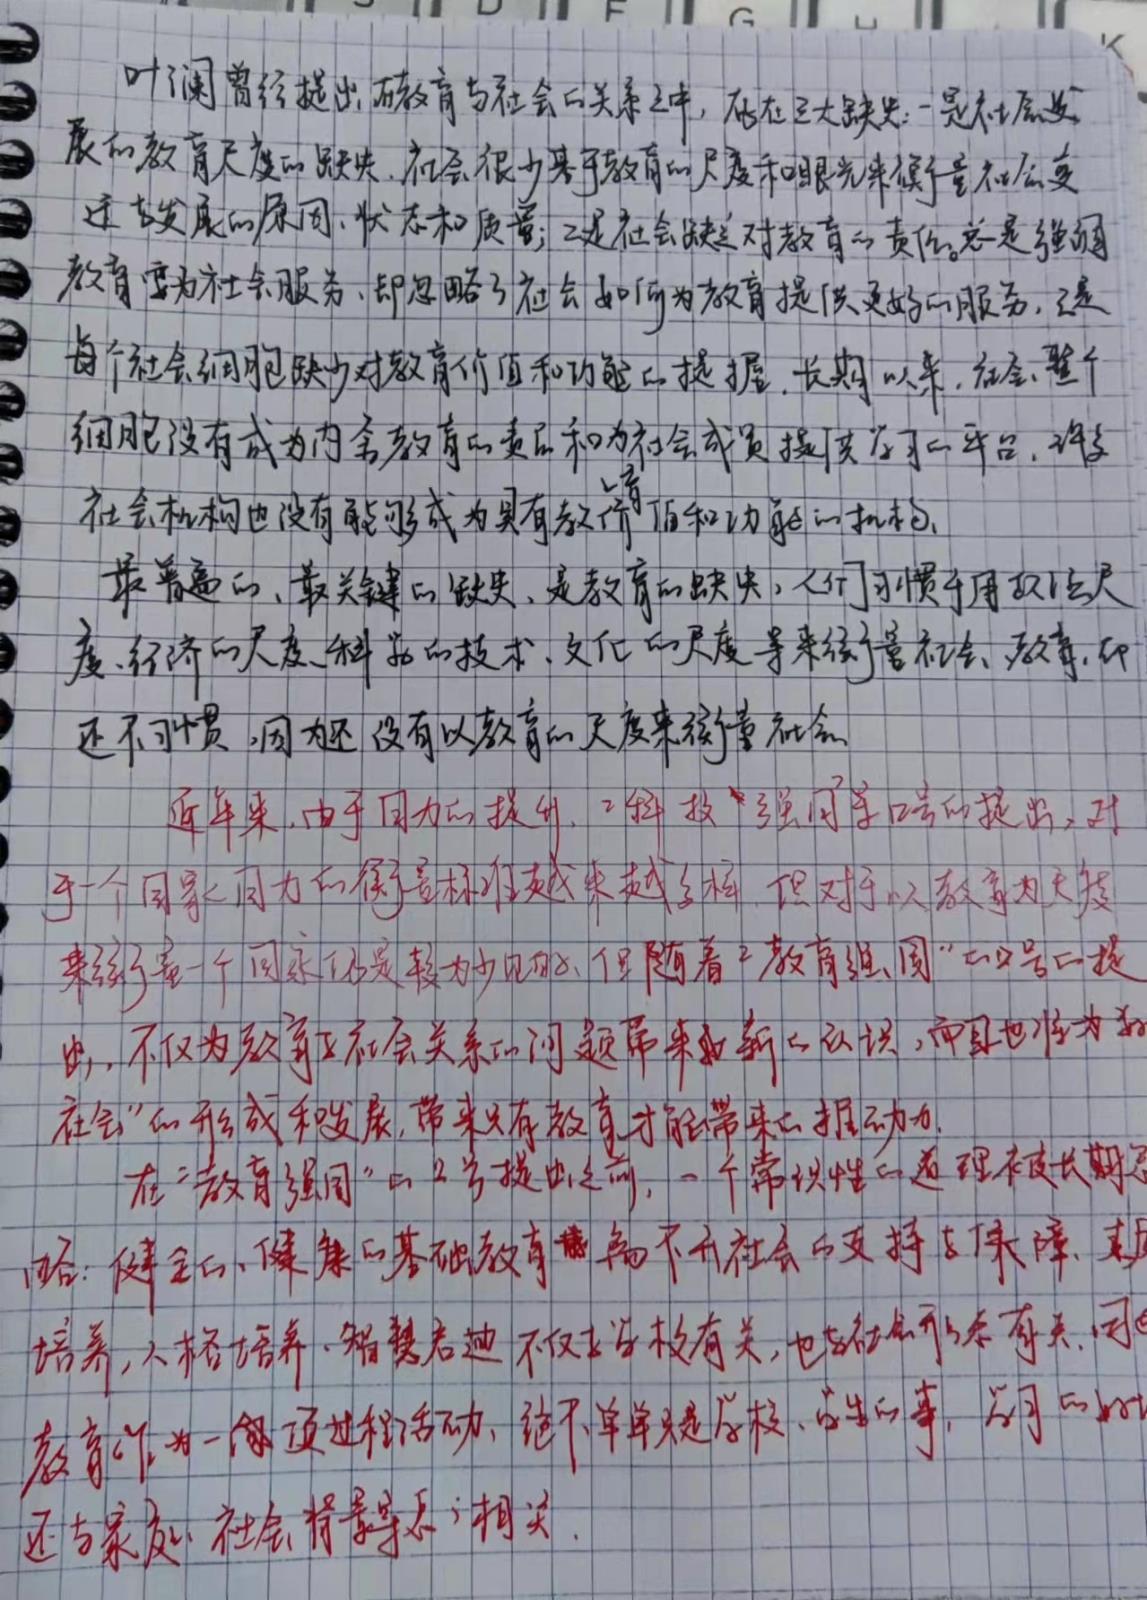 S D F G H K
叶澜曾经提出,在教育与社会的关系之中,存在三大缺失:一是社会发
展的教育尺度的缺失,社会很少基于教育的尺度和眼光来衡量社会变
迁与发展的原因、状态和质量;二是社会缺乏对教育的责任。总是强调
教育要为社会服务,却忽略了社会如何为教育提供更好的服务,三是
每个社会细胞缺少对教育价值和功能的把握,长期以来,社会整个
细胞没有成为内含教育的责任和为社会成员提供学习的平台,许多
社会机构也没有能够形成为具有教育价值和功能的机构、
最普遍的、最关键的缺失、是教育的缺失,人们习惯于用政治尺
度、经济的尺度、科学的技术、文化的尺度等来衡量社会、教育,却
还不习惯,因为还没有以教育的尺度来衡量社会
近年来,由于国力的提升,"科技强国等口号的提出,对
于一个国家国力的衡量标准越来越多样,但对于以教育为尺度
来衡量一个国家仍是较为少见的、但随着"教育强国"的口号的提
出,不仅为教育与社会关系的问题带来新的认识,而且也将为
社会"的形成和发展,带来只有教育才能带来的推动力.
在"教育强国"的口号提出之前,一个常识性的道理被长期忽
略:健全的、健康的基础教育离不开社会的支持与保障、
培养,人格培养、智慧启迪不仅与学校有关,也与社会形态有关,同
教育作为一项过程活动、绝不单单只是学校、学生的事,学习的
还与家庭、社会背景等息息相关.